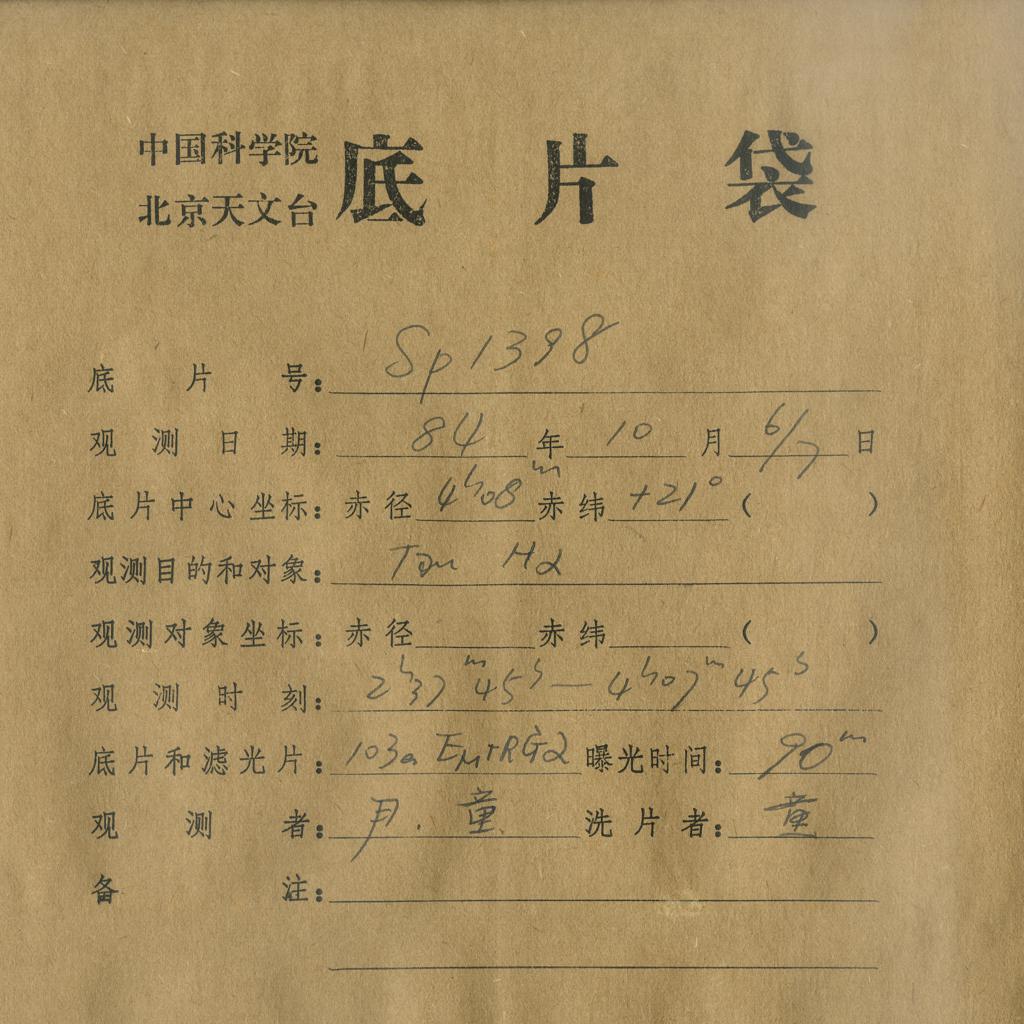 中国科学院
北京天文台 底片袋
底片号: Sp1398
观测日期: 84年10月6/7日
底片中心坐标: 赤径 4h08m 赤纬 +21° ( )
观测目的和对象: Tau Hα
观测对象坐标: 赤径 赤纬 ( )
观测时刻: 2h37m45s—4h07m45s
底片和滤光片: 103a 曝光时间: 90m
观测者: 童 洗片者: 童
备注: